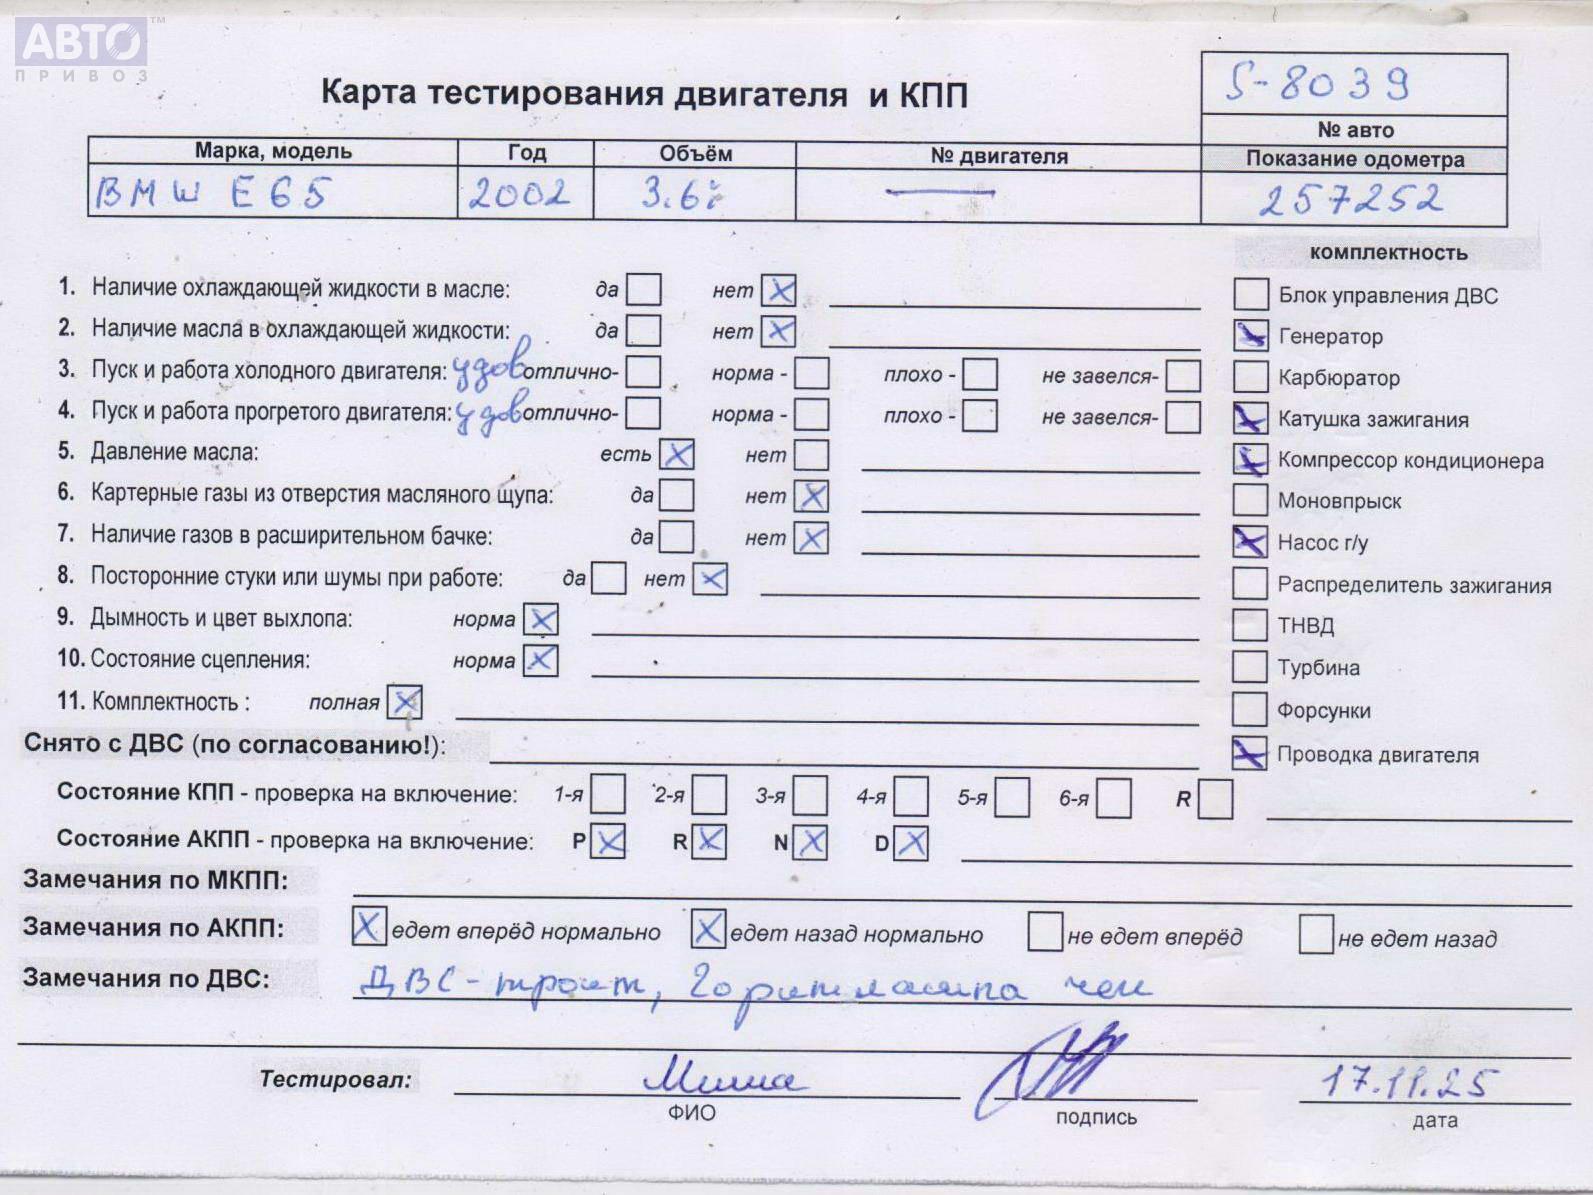 АВТО™
ПРИВОЗ
Карта тестирования двигателя и КПП
S-8039
№ авто
Марка, модель Год Объём № двигателя Показание одометра
BMW E65 2002 3.6i — 257252
комплектность
1. Наличие охлаждающей жидкости в масле: да нет X
Блок управления ДВС
2. Наличие масла в охлаждающей жидкости: да нет X
X Генератор
3. Пуск и работа холодного двигателя: удов отлично- норма - плохо - не завелся-
Карбюратор
4. Пуск и работа прогретого двигателя: удов отлично- норма - плохо - не завелся-
X Катушка зажигания
5. Давление масла: есть X нет
X Компрессор кондиционера
6. Картерные газы из отверстия масляного щупа: да нет X
Моновпрыск
7. Наличие газов в расширительном бачке: да нет X
X Насос г/у
8. Посторонние стуки или шумы при работе: да нет X
Распределитель зажигания
9. Дымность и цвет выхлопа: норма X
ТНВД
10. Состояние сцепления: норма X
Турбина
11. Комплектность : полная X
Форсунки
Снято с ДВС (по согласованию!):
X Проводка двигателя
Состояние КПП - проверка на включение: 1-я 2-я 3-я 4-я 5-я 6-я R
Состояние АКПП - проверка на включение: P X R X N X D X
Замечания по МКПП:
Замечания по АКПП: X едет вперёд нормально X едет назад нормально не едет вперёд не едет назад
Замечания по ДВС: ДВС - троит, Горит лампа чек
Тестировал: Миша 17.11.25
ФИО подпись дата